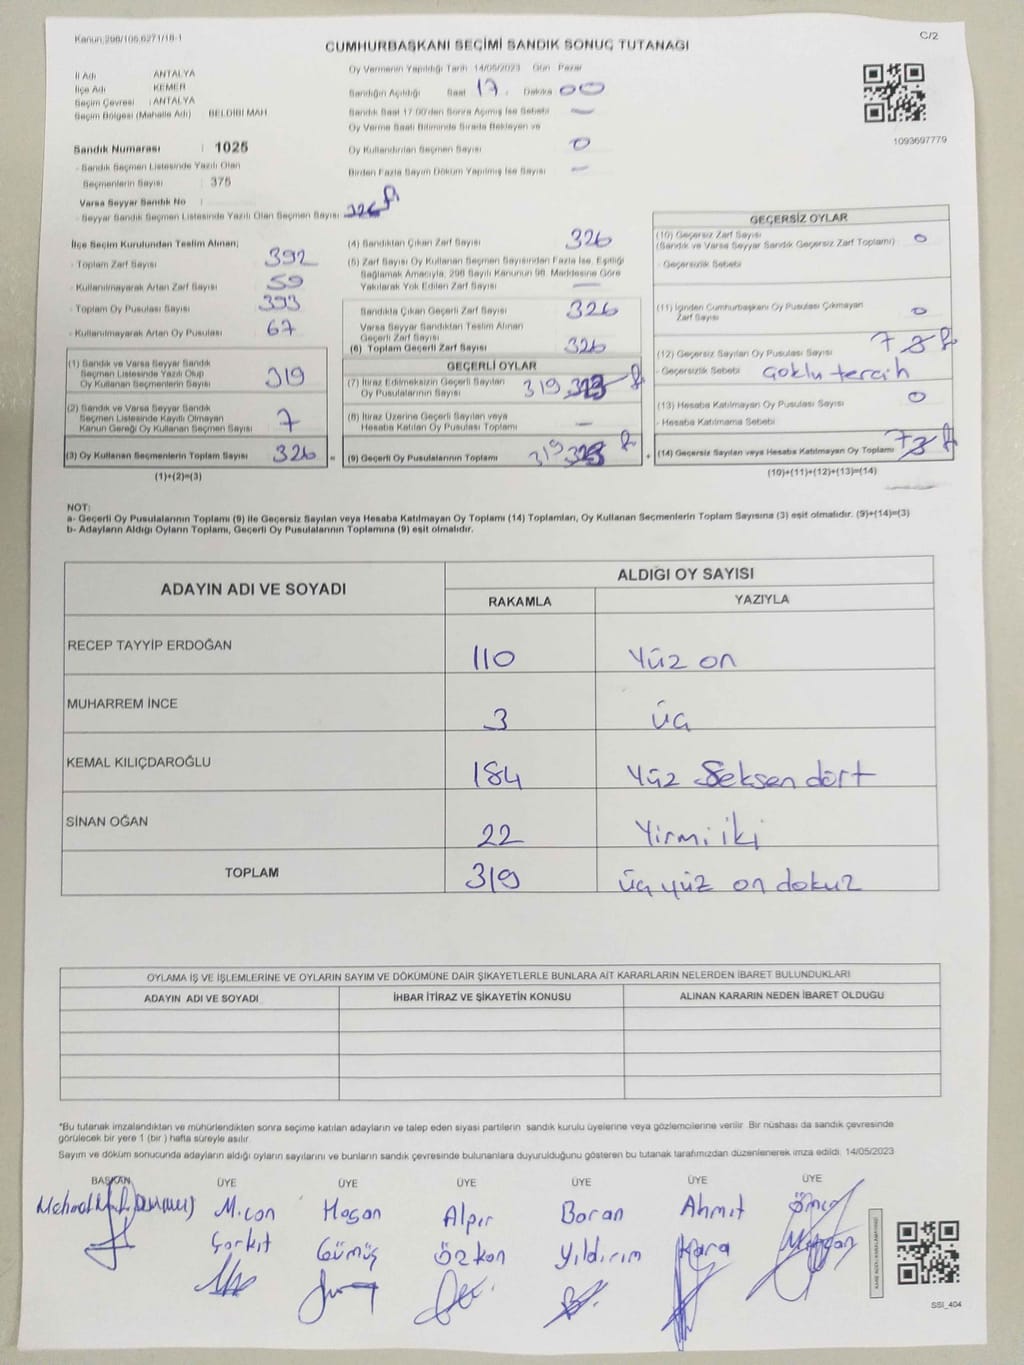 Kanun:298/105,6271/18-1
C/2
CUMHURBAŞKANI SEÇİMİ SANDIK SONUÇ TUTANAĞI
İl Adı ANTALYA
İlçe Adı KEMER
Seçim Çevresi : ANTALYA
Seçim Bölgesi (Mahalle Adı) BELDİBİ MAH
Sandık Numarası : 1025
- Sandık Seçmen Listesinde Yazılı Olan
Seçmenlerin Sayısı : 375
Varsa Seyyar Sandık No :
- Seyyar Sandık Seçmen Listesinde Yazılı Olan Seçmen Sayısı 326
Oy Vermenin Yapıldığı Tarih 14/05/2023 Gün Pazar
Sandığın Açıldığı Saat 17 : Dakika 00
Sandık Saat 17:00'den Sonra Açımış İse Sebebi —
Oy Verme Saati Bitiminde Sırada Bekleyen ve
Oy Kullandırılan Seçmen Sayısı 0
Birden Fazla Sayım Döküm Yapılmış İse Sayısı —
1093697779
İlçe Seçim Kurulundan Teslim Alınan;
- Toplam Zarf Sayısı 392
- Kullanılmayarak Artan Zarf Sayısı 59
- Toplam Oy Pusulası Sayısı 393
- Kullanılmayarak Artan Oy Pusulası 67
(1) Sandık ve Varsa Seyyar Sandık
Seçmen Listesinde Yazılı Olup
Oy Kullanan Seçmenlerin Sayısı 319
(2) Sandık ve Varsa Seyyar Sandık
Seçmen Listesinde Kayıtlı Olmayan
Kanun Gereği Oy Kullanan Seçmen Sayısı 7
(3) Oy Kullanan Seçmenlerin Toplam Sayısı 326
(1)+(2)=(3)
(4) Sandıktan Çıkan Zarf Sayısı 326
(5) Zarf Sayısı Oy Kullanan Seçmen Sayısından Fazla İse, Eşitliği
Sağlamak Amacıyla, 298 Sayılı Kanunun 98. Maddesine Göre
Yakılarak Yok Edilen Zarf Sayısı —
Sandıkta Çıkan Geçerli Zarf Sayısı 326
Varsa Seyyar Sandıktan Teslim Alınan
Geçerli Zarf Sayısı
(6) Toplam Geçerli Zarf Sayısı 326
GEÇERLİ OYLAR
(7) İtiraz Edilmeksizin Geçerli Sayılan
Oy Pusulasının Sayısı 319
(8) İtiraz Üzerine Geçerli Sayılan veya
Hesaba Katılan Oy Pusulası Toplamı —
= (9) Geçerli Oy Pusulalarının Toplamı 319
GEÇERSİZ OYLAR
(10) Geçersiz Zarf Sayısı 0
(Sandık ve Varsa Seyyar Sandık Geçersiz Zarf Toplamı)
- Geçersizlik Sebebi
(11) İçinden Cumhurbaşkanı Oy Pusulası Çıkmayan
Zarf Sayısı 0
(12) Geçersiz Sayılan Oy Pusulası Sayısı 7
- Geçersizlik Sebebi Çoklu tercih
(13) Hesaba Katılmayan Oy Pusulası Sayısı 0
- Hesaba Katılmama Sebebi
+ (14) Geçersiz Sayılan veya Hesaba Katılmayan Oy Toplamı 7
(10)+(11)+(12)+(13)=(14)
NOT:
a- Geçerli Oy Pusulalarının Toplamı (9) ile Geçersiz Sayılan veya Hesaba Katılmayan Oy Toplamı (14) Toplamları, Oy Kullanan Seçmenlerin Toplam Sayısına (3) eşit olmalıdır. (9)+(14)=(3)
b- Adayların Aldığı Oyların Toplamı, Geçerli Oy Pusulalarının Toplamına (9) eşit olmalıdır.
ADAYIN ADI VE SOYADI ALDIĞI OY SAYISI
RAKAMLA YAZIYLA
RECEP TAYYİP ERDOĞAN 110 Yüz on
MUHARREM İNCE 3 üç
KEMAL KILIÇDAROĞLU 184 Yüz Seksen dört
SİNAN OĞAN 22 Yirmi iki
TOPLAM 319 üç yüz on dokuz
OYLAMA İŞ VE İŞLEMLERİNE VE OYLARIN SAYIM VE DÖKÜMÜNE DAİR ŞİKAYETLERLE BUNLARA AİT KARARLARIN NELERDEN İBARET BULUNDUKLARI
ADAYIN ADI VE SOYADI İHBAR İTİRAZ VE ŞİKAYETİN KONUSU ALINAN KARARIN NEDEN İBARET OLDUĞU
*Bu tutanak imzalandıktan ve mühürlendikten sonra seçime katılan adayların ve talep eden siyasi partilerin sandık kurulu üyelerine veya gözlemcilerine verilir. Bir nüshası da sandık çevresinde
görülecek bir yere 1 (bir) hafta süreyle asılır.
Sayım ve döküm sonucunda adayların aldığı oyların sayılarını ve bunların sandık çevresinde bulunanlara duyurulduğunu gösteren bu tutanak tarafımızdan düzenlenerek imza edildi. 14/05/2023
BAŞKAN ÜYE ÜYE ÜYE ÜYE ÜYE ÜYE
M.can Hasan Alper Boran Ahmet Ömer
Gümüş Özkan Yıldırım Kara
SSI_404